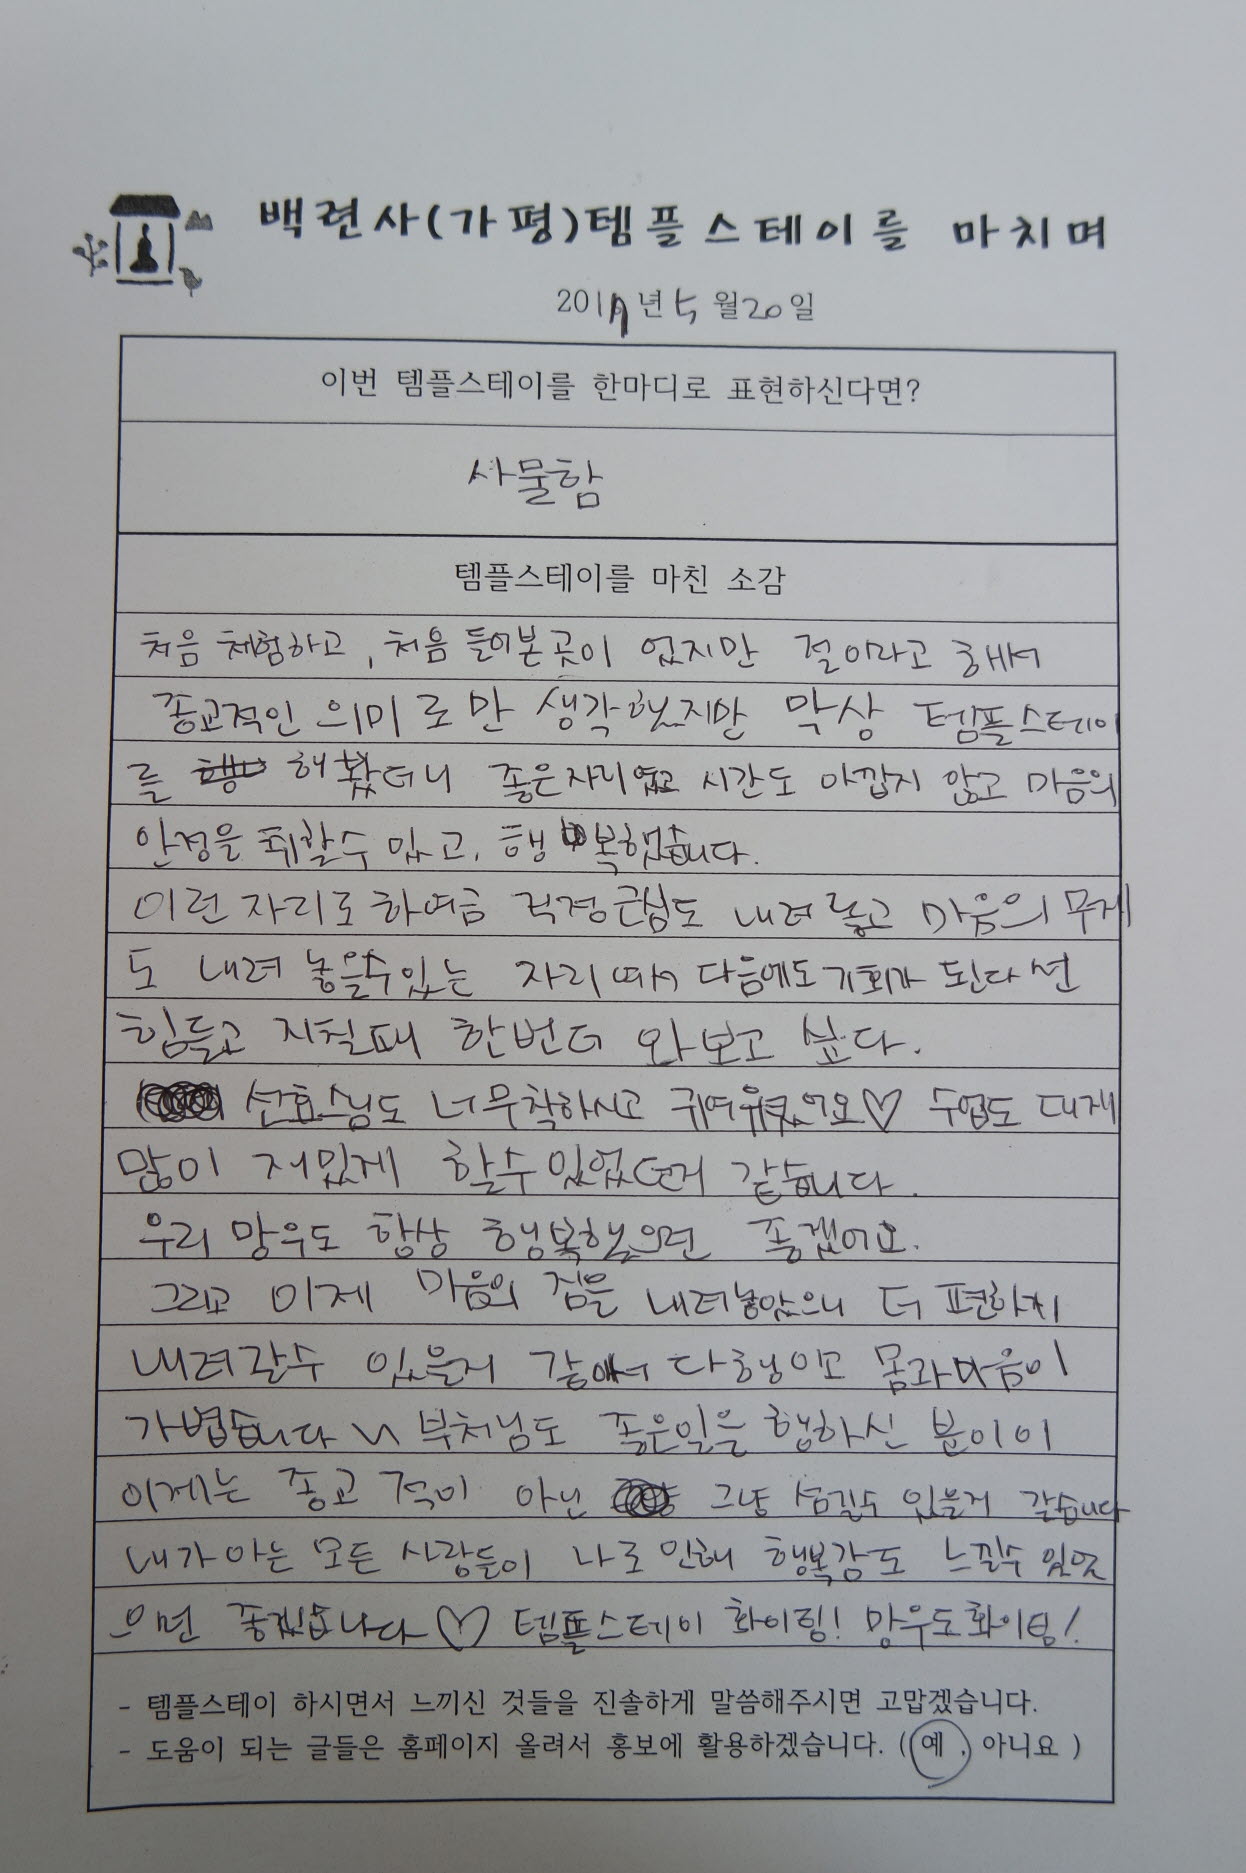 백련사(가평)템플스테이를 마치며
2017년 5월20일
이번 템플스테이를 한마디로 표현하신다면?
사물함
템플스테이를 마친 소감
처음 체험하고, 처음 들어본곳이 없지만 절이라고 해서
종교적인 의미로만 생각했지만 막상 템플스테이
를 해봤더니 좋은자리였고 시간도 아깝지 않고 마음의
안정을 취할수 있고, 행복했습니다.
이런 자리로 하여금 걱정 근심도 내려 놓고 마음의 무게
도 내려 놓을수있는 자리 다음에도 기회가 된다면
힘들고 지칠때 한번더 와보고 싶다.
선효스님도 너무착하시고 귀여워요♡ 수업도
많이 재밌게 할수있었던거 같습니다.
우리 망우도 항상 행복했으면 좋겠어요.
그리고 이제 마음의 짐을 내려놓았으니 더 편하게
내려갈수 있을거 같아서 다행이고 몸과마음이
가볍습니다 부처님도 좋은일을 행하신 분이니
이제는 종교적이 아닌 그냥 섬길수 있을거 같습니다
내가 아는 모든 사람들이 나로 인해 행복감도 느낄수 있었
으면 좋겠습니다♡ 템플스테이 화이팅! 망우도화이팅!
- 템플스테이 하시면서 느끼신 것들을 진솔하게 말씀해주시면 고맙겠습니다.
- 도움이 되는 글들은 홈페이지 올려서 홍보에 활용하겠습니다. (예 , 아니요 )